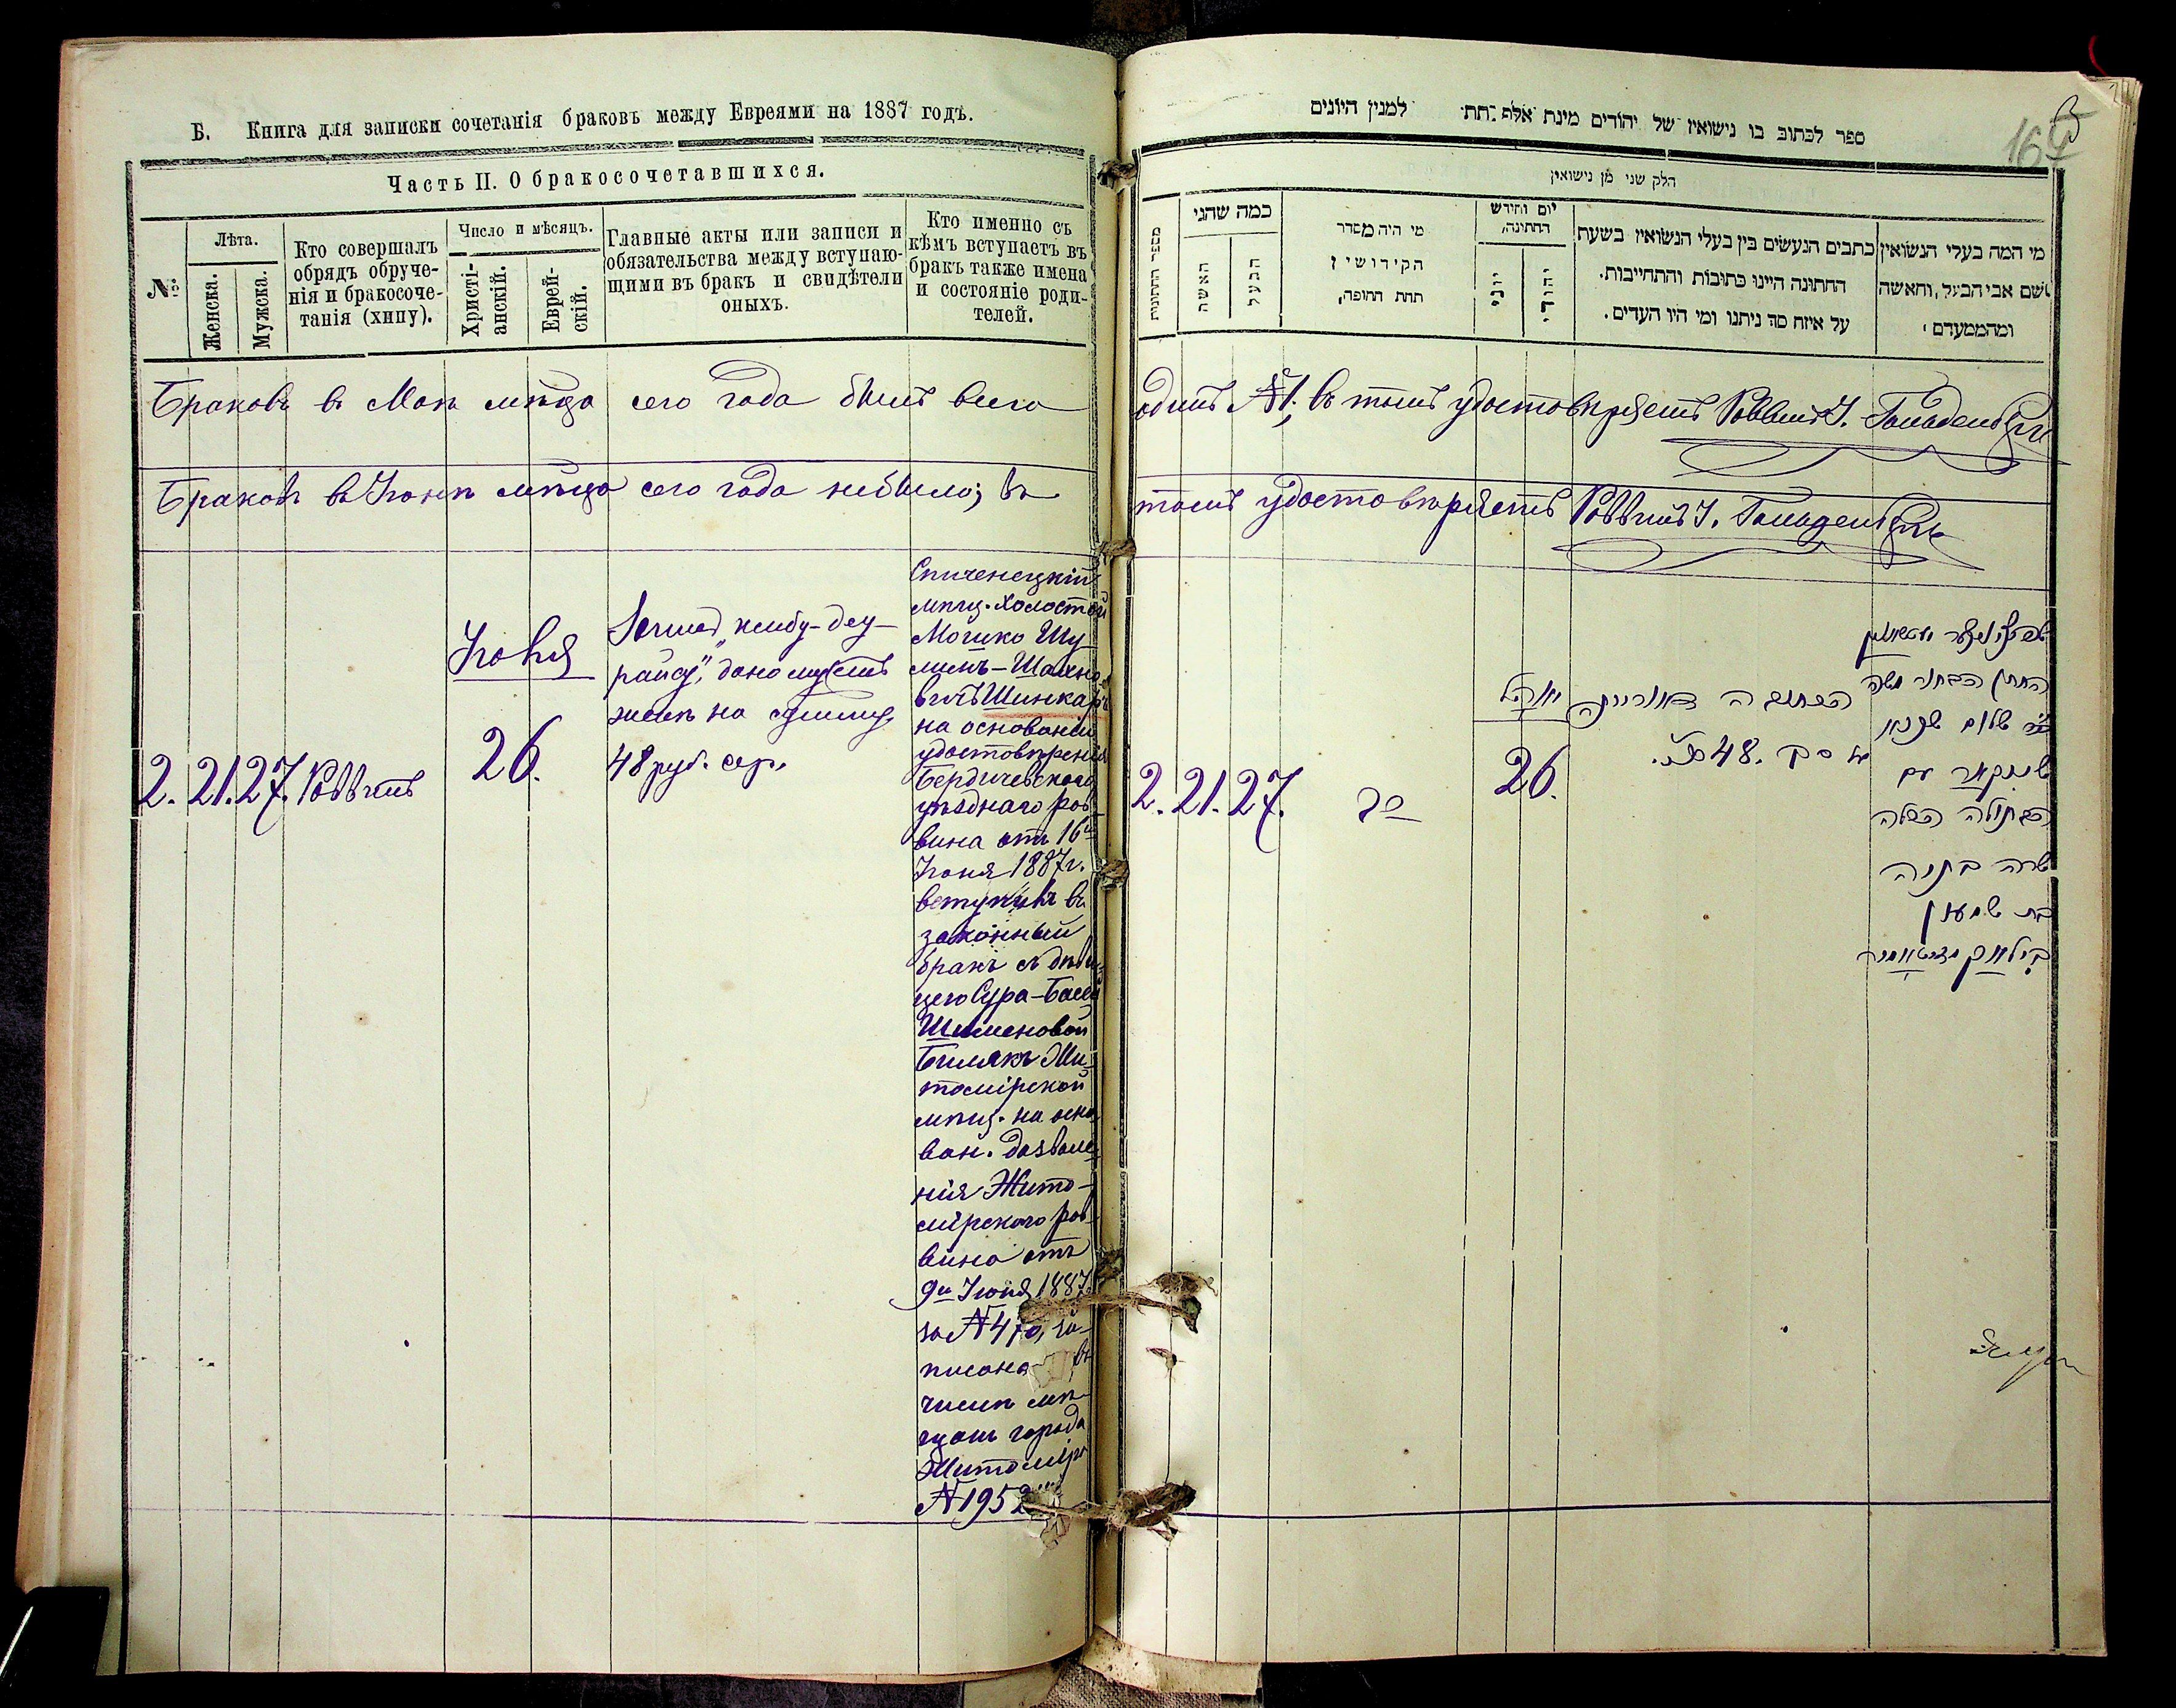 Б. Книга для записки сочетанія браковъ между Евреями на 1887 годъ.
Часть II. О бракосочетавшихся.
№
Лѣта.
Женска.
Мужска.
Кто совершалъ
обрядъ обруче-
нія и бракосоче-
танія (хипу).
Число и мѣсяцъ.
Христі-
анскій.
Еврей-
скій.
Главные акты или записи и
обязательства между вступаю-
щими въ бракъ и свидѣтели
оныхъ.
Кто именно съ
кѣмъ вступаетъ въ
бракъ также имена
и состояніе роди-
телей.
Браковъ в Маѣ мѣсяца сего года былъ всего
Браковъ въ Іюнѣ мѣсяца сего года небыло; въ
2. 21. 27. Раввинъ
Іюня
26.
раису," дано мужемъ
женѣ на сумму
48 руб. сер.
Спиченецкій
мѣщ. холостой
Мошко Шу
лимъ-Шахно
вичъ Шинкарь
на основаніи
удостовѣренія
Бердичевскаго
уѣзднаго рав
вина отъ 16го
Іюня 1887г.
вступилъ въ
законный
бракъ съ дѣви
цею Сура-Басей
Шименовой
Билякъ Жи
томірской
мѣщ. на осно
ван. дозволе
нія Жито-
мірскаго рав
вина отъ
9го Іюня 1887
за №470, за-
писана въ
числѣ мѣ
щанъ города
Житоміра
№1952
ספר לכתוב בו נישואין של יהודים מינת אלף תת למנין היונים
164
חלק שני מן נישואין
מספר החתונות
כמה שהני
האשה
הבעל
מי היה מסדר
הקידושין
תחת החופה,
יום וחידש
החתונה,
יוני
יהודי
כתבים הנעשים בין בעלי הנשואין בשעת
החתונה היינו כתובות והתחייבות.
על איזה סה ניתנו ומי היו העדים.
מי המה בעלי הנשואין
ושם אבי הבעל, והאשה
ומהממעדם,
однъ №1; въ томъ удостовѣряетъ Раввинъ І.
томъ удостовѣряетъ Раввинъ І.
2. 21. 27.
26.
החתן הבחור משה
שלום שכנא
שינקאר עם
הבתולה הכלה
שרה בתיה
בת שמעון